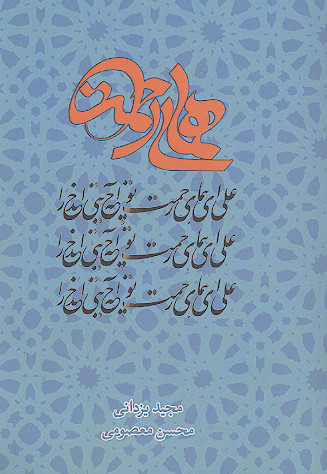 همای رحمت
علی ای همای رحمت تو چه آیتی خدا را
علی ای همای رحمت تو چه آیتی خدا را
علی ای همای رحمت تو چه آیتی خدا را
مجید یزدانی
محسن معصومی